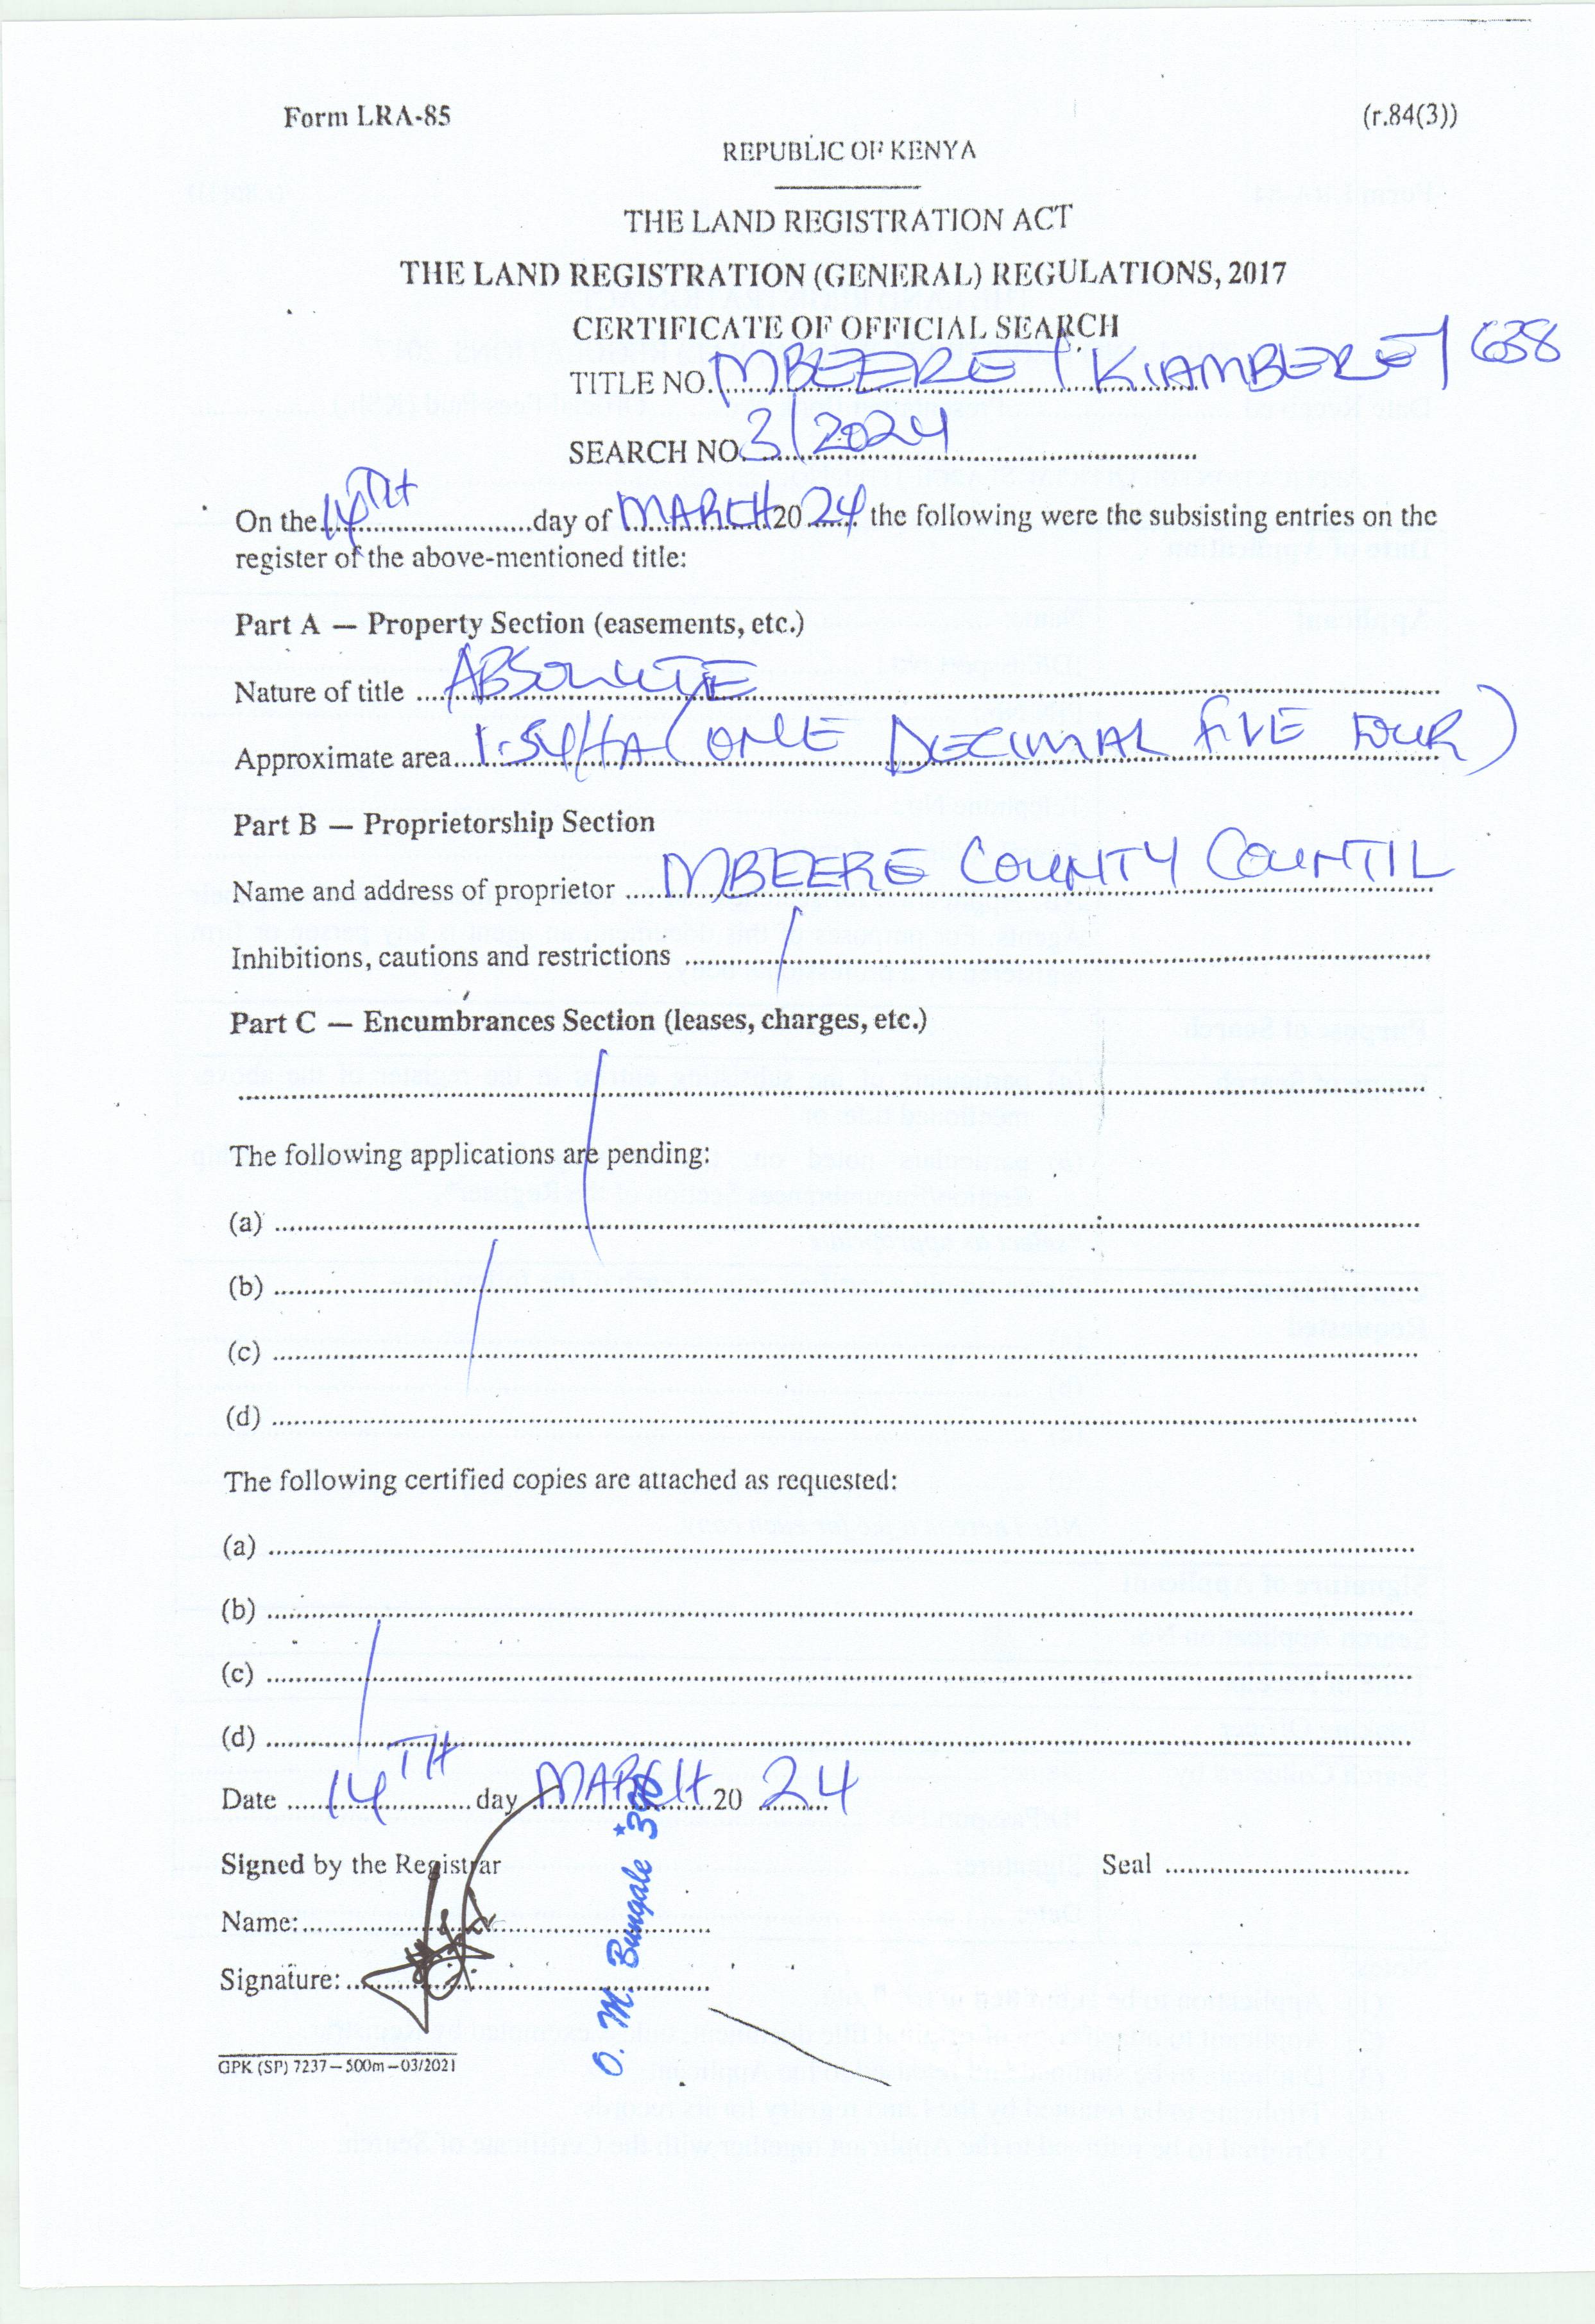 Form LRA-85 (r.84(3))
REPUBLIC OF KENYA
THE LAND REGISTRATION ACT
THE LAND REGISTRATION (GENERAL) REGULATIONS, 2017
CERTIFICATE OF OFFICIAL SEARCH
TITLE NO. MBEERE / KIAMBERE / 638
SEARCH NO. 3/2024
On the 14TH day of MARCH 2024 the following were the subsisting entries on the
register of the above-mentioned title:
Part A — Property Section (easements, etc.)
Nature of title ABSOLUTE
Approximate area 1.54HA (ONE DECIMAL FIVE FOUR)
Part B — Proprietorship Section
Name and address of proprietor MBEERE COUNTY COUNTIL
Inhibitions, cautions and restrictions /
Part C — Encumbrances Section (leases, charges, etc.)
The following applications are pending:
(a)
(b)
(c)
(d)
The following certified copies are attached as requested:
(a)
(b)
(c)
(d)
Date 14TH day MARCH 20 24
Signed by the Registrar Seal
Name:
Signature:
O. M. Bungale *390
GPK (SP) 7237—500m—03/2021